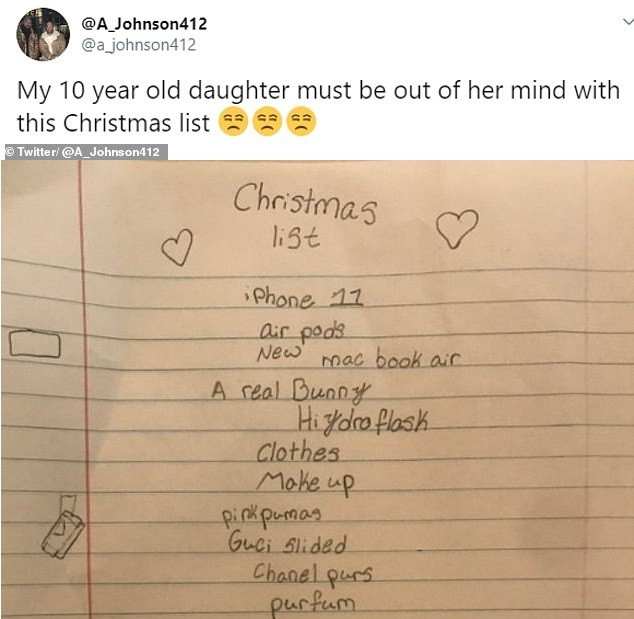 @A_Johnson412
@a_johnson412
My 10 year old daughter must be out of her mind with
this Christmas list 😒😒😒
© Twitter/ @A_Johnson412
Christmas
list
iPhone 11
air pods
New mac book air
A real Bunny
Hiydroflask
Clothes
Make up
pink pumas
Guci slided
Chanel purs
purfum